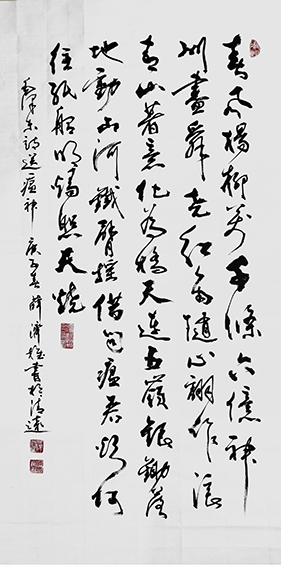 春风楊柳萬千條六億神
州盡舜尧红雨隨心翻作浪
青山著意化为橋天連五嶺銀鋤落
地動山河鐵臂摇借问瘟君欲何
往纸船明燭照天燒
毛泽东詩送瘟神 庚子春 書於清遠